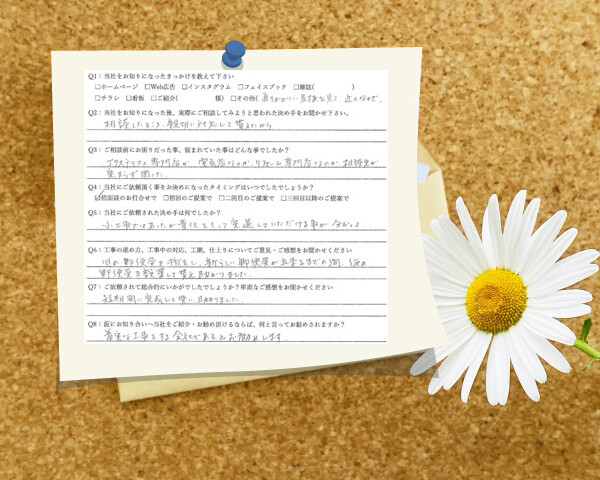 Q1：当社をお知りになったきっかけを教えて下さい
□ホームページ □Web広告 □インスタグラム □フェイスブック □雑誌( )
□チラシ □看板 □ご紹介( 様) □その他( 通りかかりに看板を見て 近くなので、
Q2：当社をお知りになった後、実際にご相談してみようと思われた決め手をお聞かせ下さい。
相談したところ、親切に対応して貰えたから
Q3：ご相談前にお困りだった事、悩まれていた事はどんな事でしたか？
エクステリアの専門店か 電気店なのか、リフォーム専門店なのか 相談先が
決まらず困った。
Q4：当社にご依頼頂く事をお決めになったタイミングはいつでしたでしょうか？
☑初面談のお打合せで □初回のご提案で □二回目のご提案で □三回目以降のご提案で
Q5：当社にご依頼された決め手は何でしたか？
小工事ではあったが責任をもって完遂していただける事が分かった
Q6：工事の進め方、工事中の対応、工期、仕上りについてご意見・ご感想をお聞かせください
旧の郵便受を撤去し、新らしい郵便受が出来るまでの間、仮の
郵便受を設置して貰え助かりました。
Q7：ご依頼されて総合的にいかがでしたでしょうか？率直なご感想をお聞かせください
短期間に完成して貰い、助かりました。
Q8：仮にお知り合いへ当社をご紹介・お勧め頂けるならば、何と言ってお勧めされますか？
着実な工事をする会社であるとお勧めします。